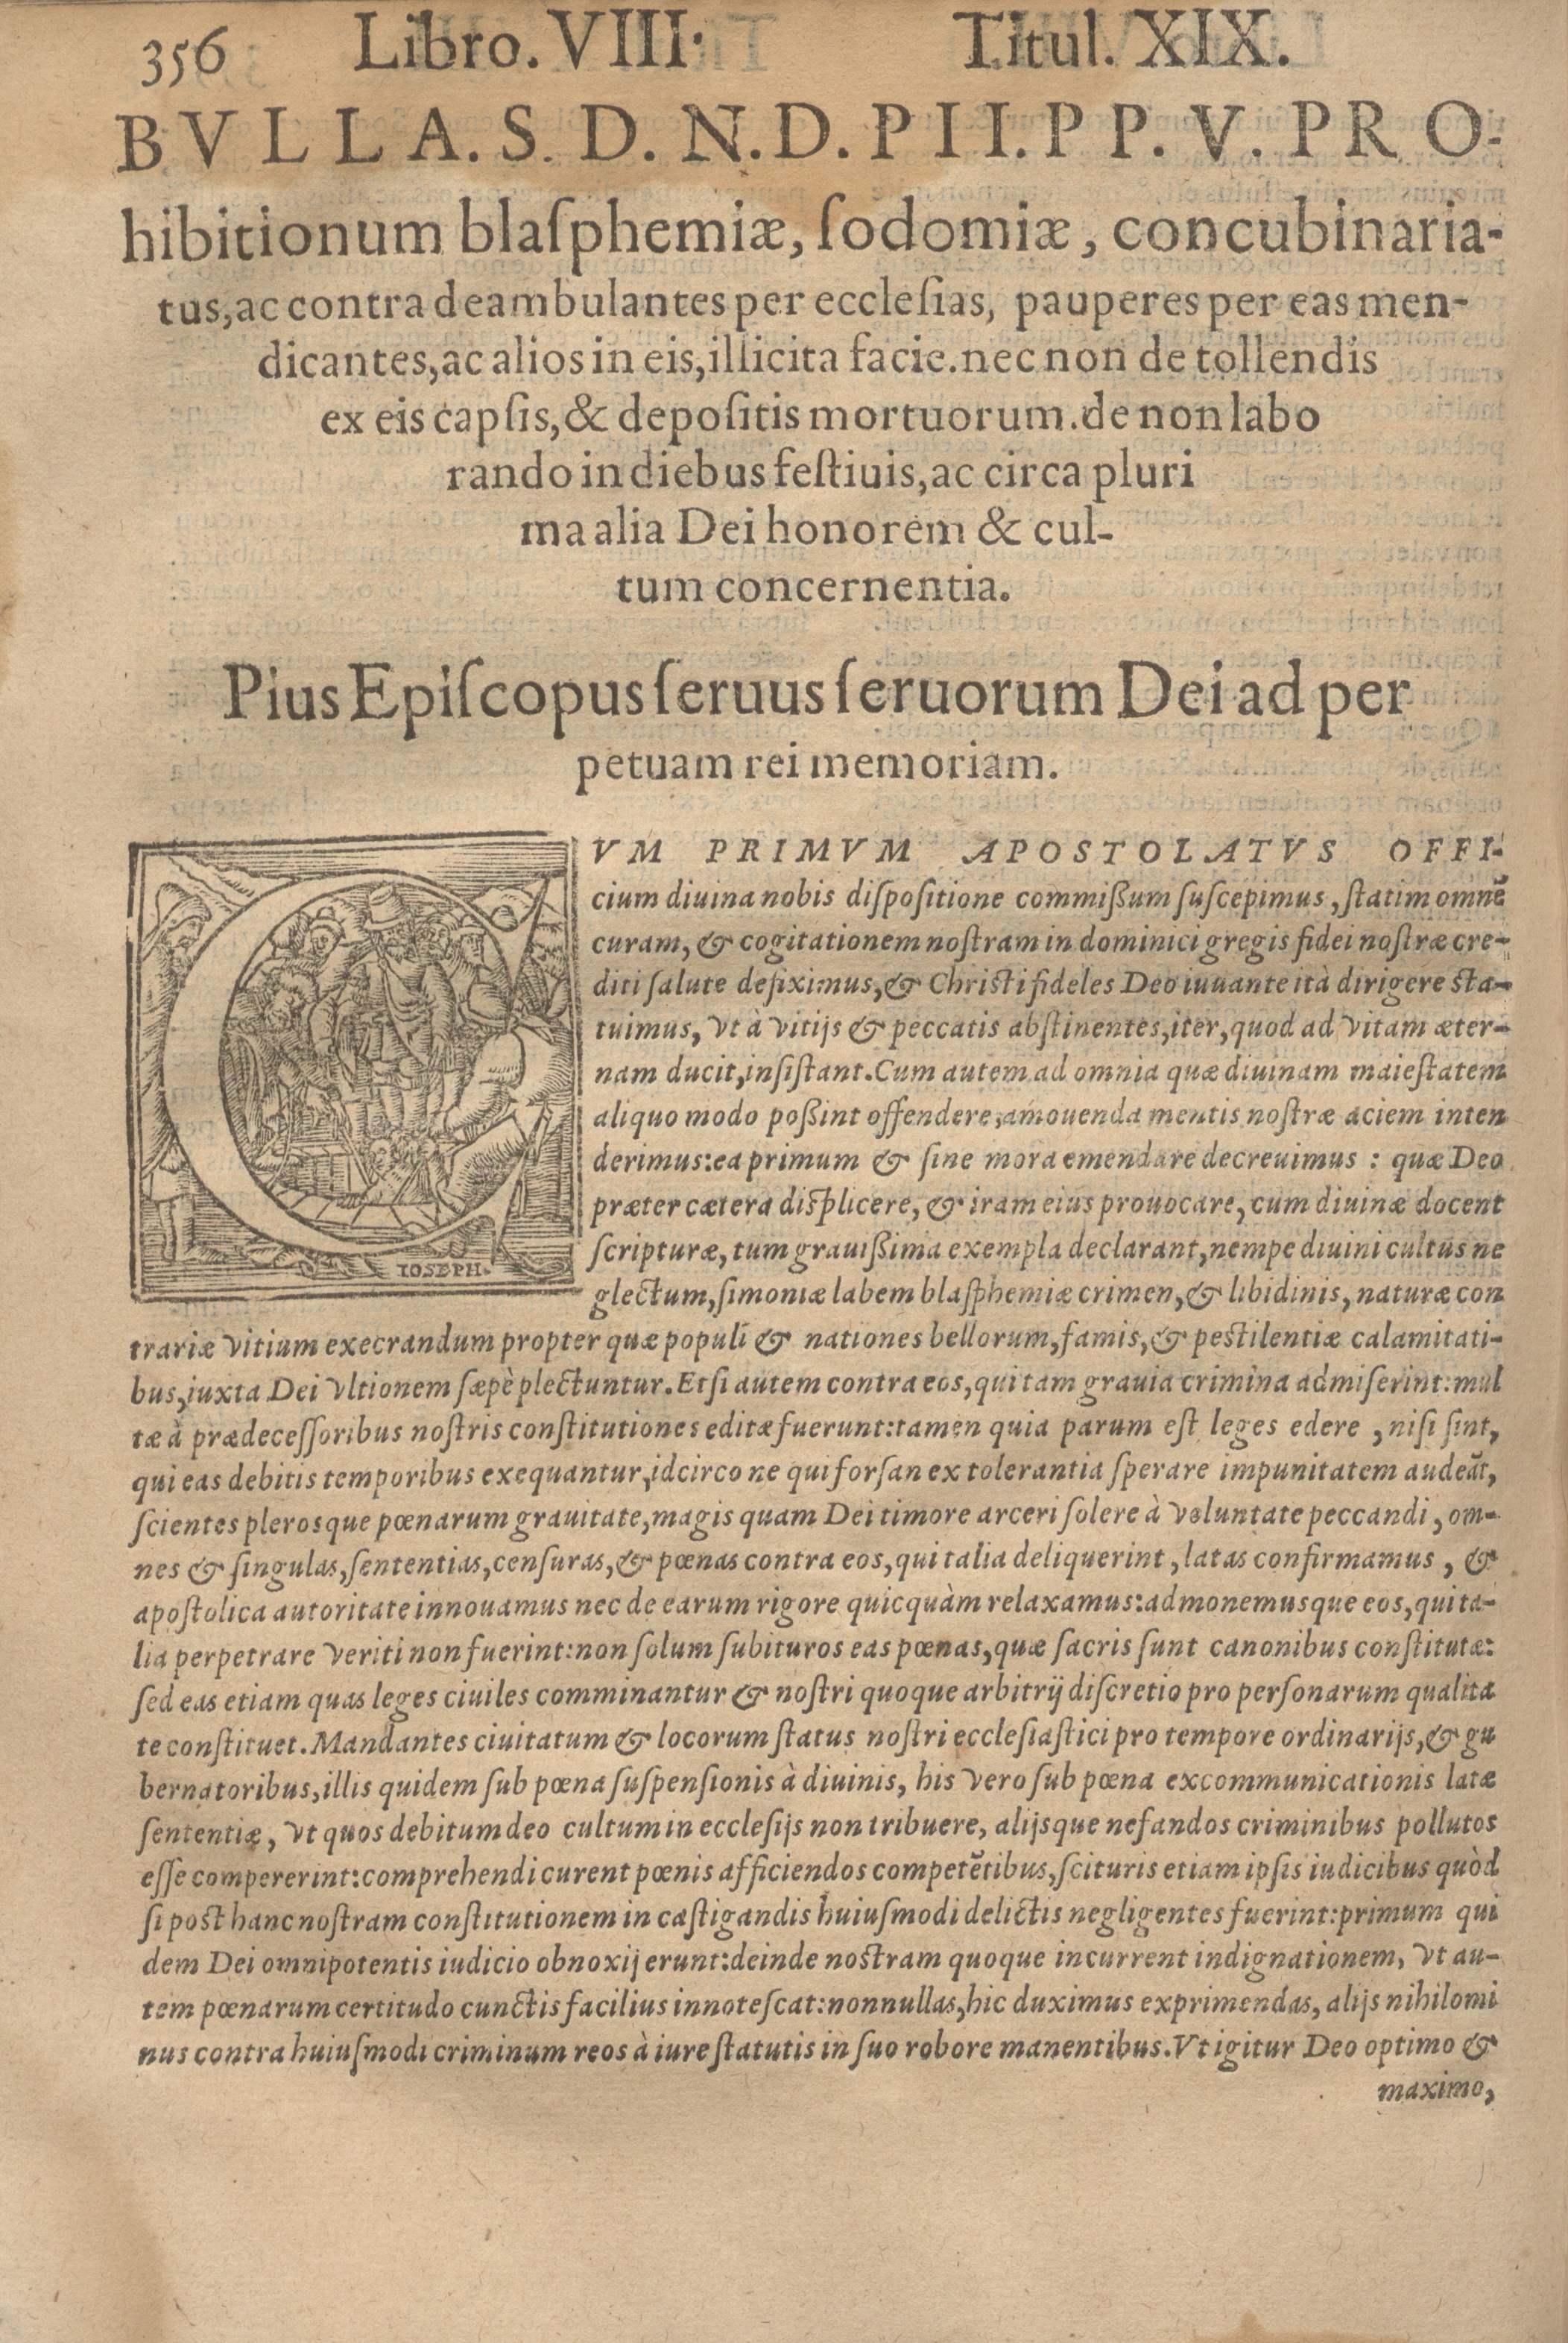 356 Libro. VIII. Titul. XIX.
BVLLA. S. D. N. D. PII. PP. V. PRO-
hibitionum blaſphemiæ, ſodomiæ, concubinaria-
tus, ac contra deambulantes per eccleſias, pauperes per eas men-
dicantes, ac alios in eis, illicita facie. nec non de tollendis
ex eis capſis, & depoſitis mortuorum. de non labo
rando in diebus feſtiuis, ac circa pluri
ma alia Dei honorem & cul-
tum concernentia.
Pius Epiſcopus ſeruus ſeruorum Dei ad per
petuam rei memoriam.
CVM PRIMVM APOSTOLATVS OFFI-
cium diuina nobis diſpoſitione commiſſum ſuſcepimus, ſtatim omnē
curam, & cogitationem noſtram in dominici gregis fidei noſtræ cre-
diti ſalute defiximus, & Chriſti fideles Deo iuuante ità dirigere ſta-
tuimus, vt à vitijs & peccatis abſtinentes, iter, quod ad vitam æter-
nam ducit, inſiſtant. Cum autem ad omnia quæ diuinam maieſtatem
aliquo modo poſſint offendere, amouenda mentis noſtræ aciem inten
derimus: ea primum & ſine mora emendare decreuimus : quæ Deo
præter cætera diſplicere, & iram eius prouocare, cum diuinæ docent
ſcripturæ, tum grauiſſima exempla declarant, nempe diuini cultus ne
glectum, ſimoniæ labem blaſphemiæ crimen, & libidinis, naturæ con
IOSEPH.
trariæ vitium execrandum propter quæ populi & nationes bellorum, famis, & peſtilentiæ calamitati-
bus, iuxta Dei vltionem ſæpè plectuntur. Et ſi autem contra eos, qui tam grauia crimina admiſerint: mul
tæ à prædeceſſoribus noſtris conſtitutiones editæ fuerunt: tamen quia parum eſt leges edere , niſi ſint,
qui eas debitis temporibus exequantur, idcirco ne qui forſan ex tolerantia ſperare impunitatem audeāt,
ſcientes pleroſque pœnarum grauitate, magis quam Dei timore arceri ſolere à voluntate peccandi , om-
nes & ſingulas, ſententias, cenſuras, & pœnas contra eos, qui talia deliquerint , latas confirmamus , &
apoſtolica autoritate innouamus nec de earum rigore quicquàm relaxamus: admonemusque eos, qui ta-
lia perpetrare veriti non fuerint: non ſolum ſubituros eas pœnas, quæ ſacris ſunt canonibus conſtitutæ:
ſed eas etiam quas leges ciuiles comminantur & noſtri quoque arbitrij diſcretio pro perſonarum qualita
te conſtituet. Mandantes ciuitatum & locorum ſtatus noſtri eccleſiaſtici pro tempore ordinarijs, & gu
bernatoribus, illis quidem ſub pœna ſuſpenſionis à diuinis, his vero ſub pœna excommunicationis latæ
ſententiæ, vt quos debitum deo cultum in eccleſijs non tribuere, alijsque nefandos criminibus pollutos
eſſe compererint: comprehendi curent pœnis afficiendos competētibus, ſcituris etiam ipſis iudicibus quòd
ſi poſt hanc noſtram conſtitutionem in caſtigandis huiuſmodi delictis negligentes fuerint: primum qui
dem Dei omnipotentis iudicio obnoxij erunt: deinde noſtram quoque incurrent indignationem, vt au-
tem pœnarum certitudo cunctis facilius innoteſcat: nonnullas, hic duximus exprimendas, alijs nihilomi
nus contra huiuſmodi criminum reos à iure ſtatutis in ſuo robore manentibus. Vt igitur Deo optimo &
maximo,